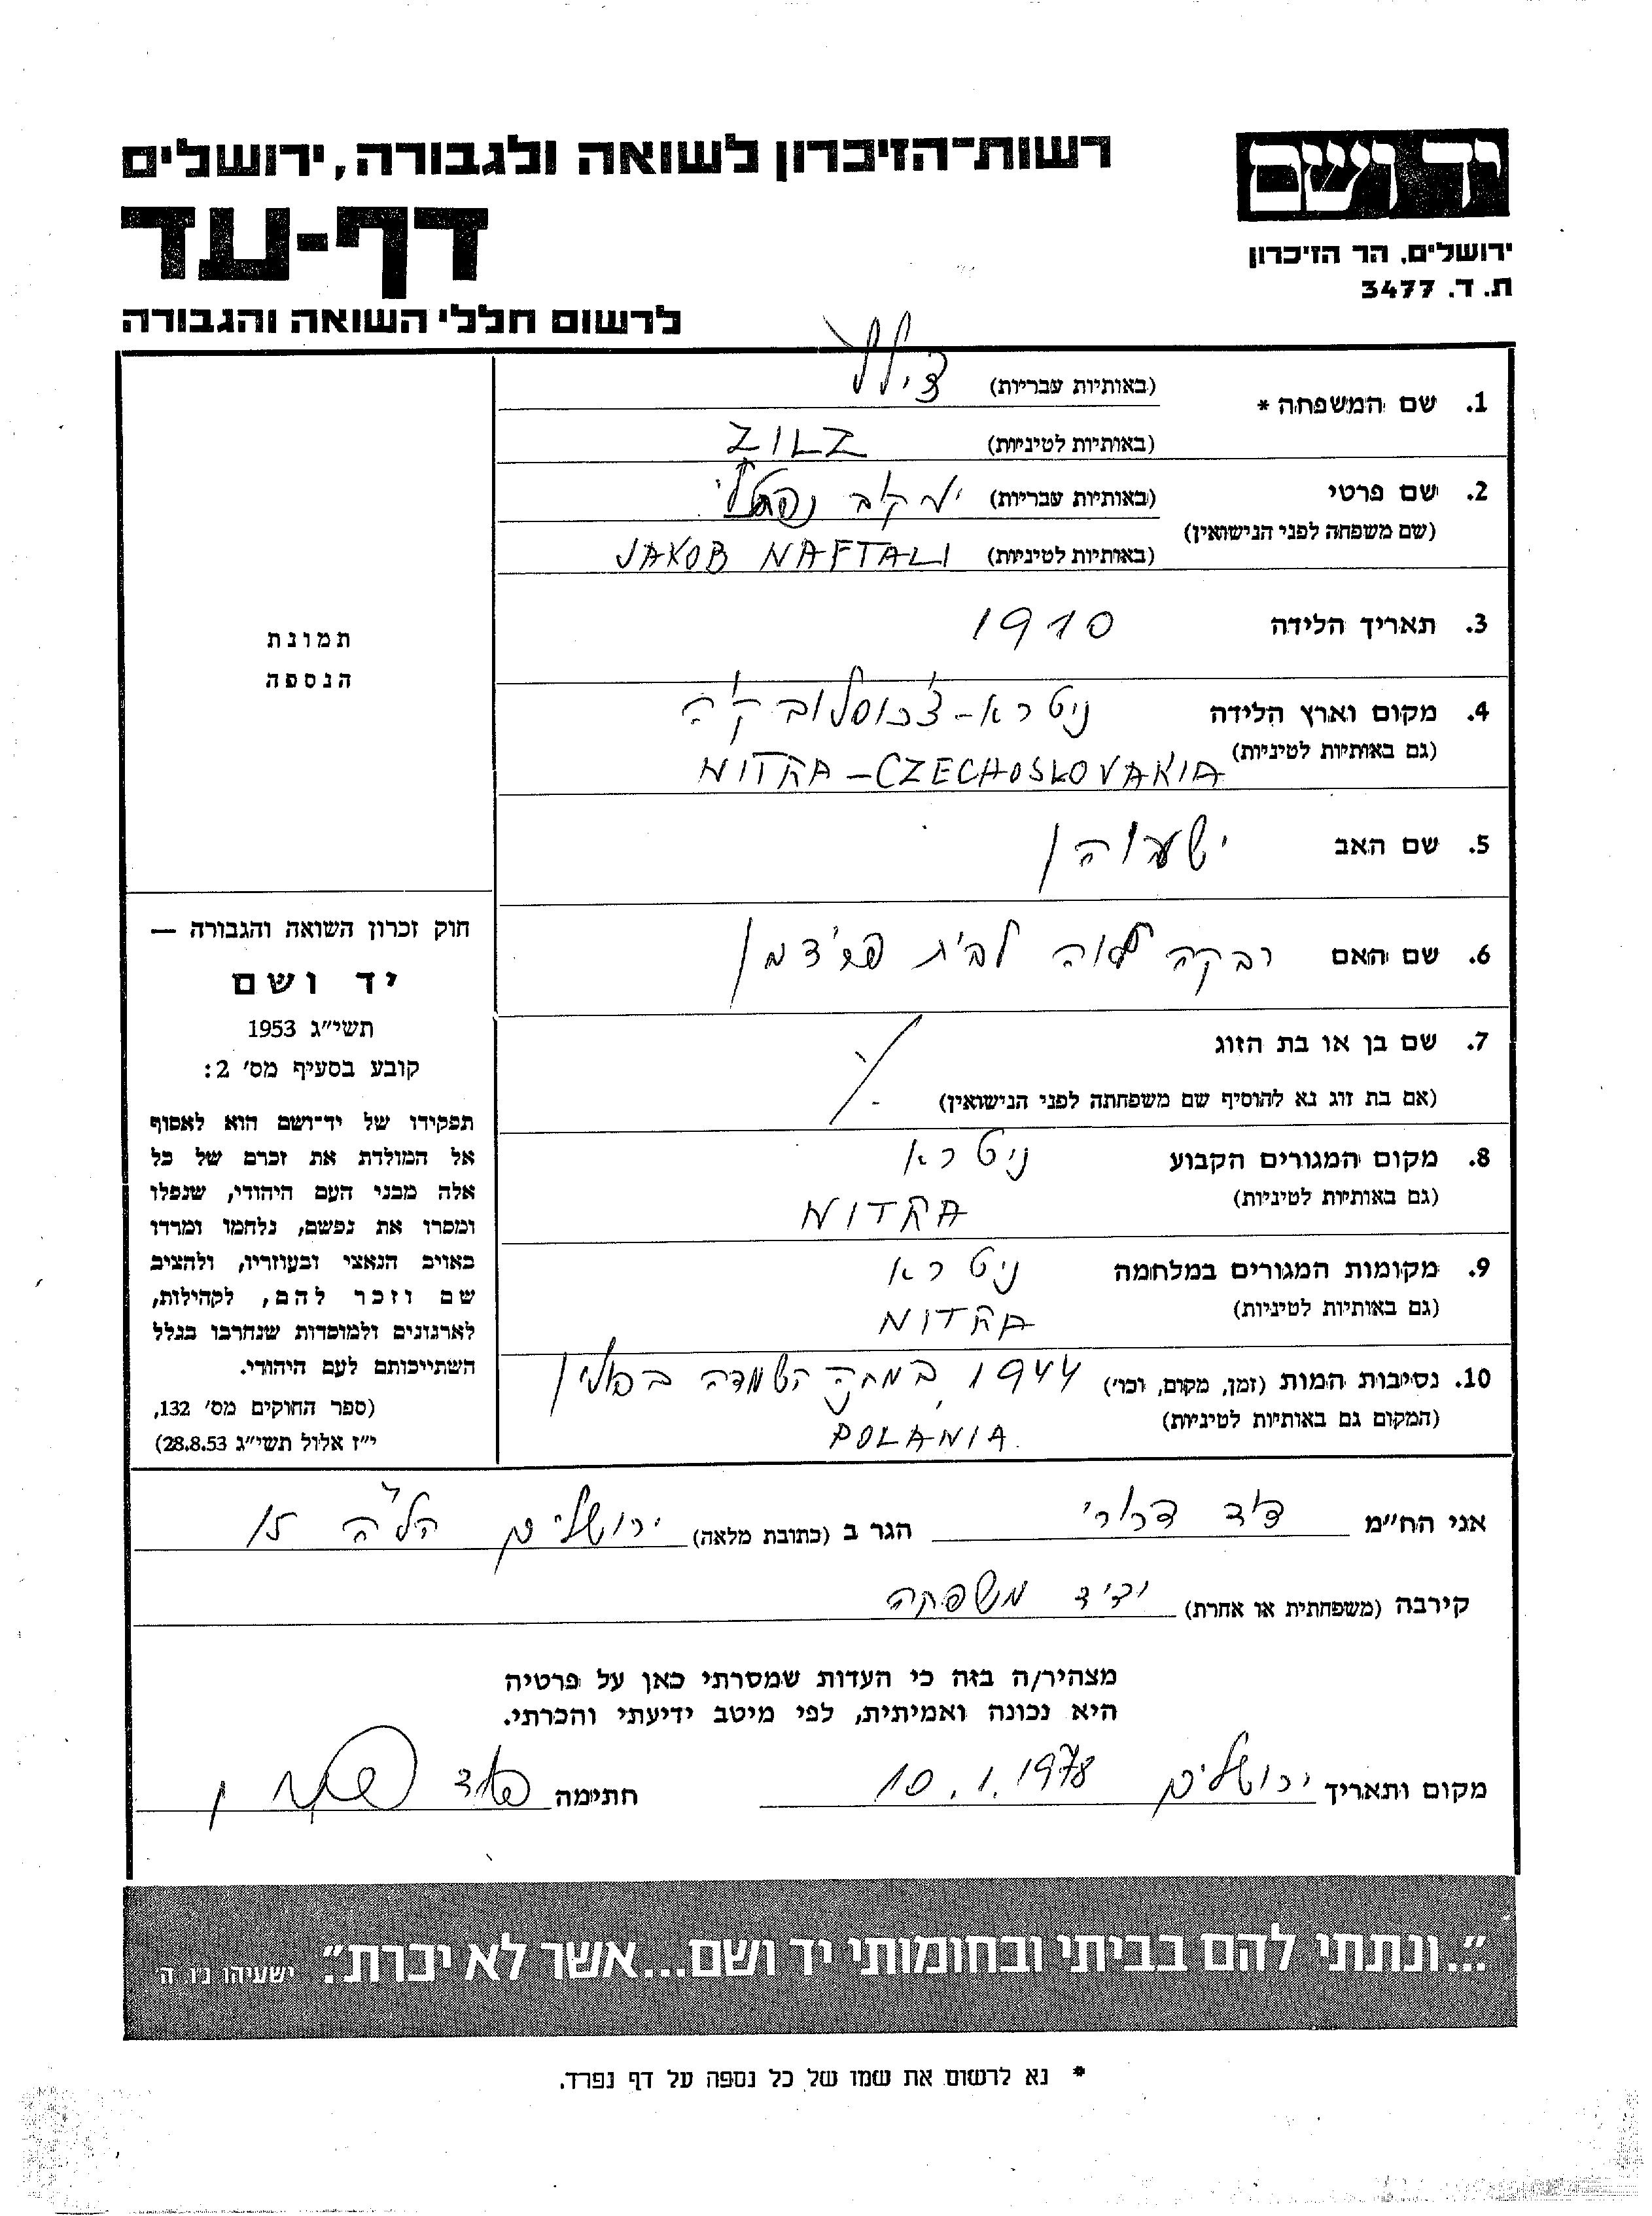 רשות־הזיכרון לשואה ולגבורה, ירושלים
יד ושם
דף-עד
ירושלים, הר הזיכרון
ת. ד. 3477
לרשום חללי השואה והגבורה
1. שם המשפחה *
(באותיות עבריות)
(באותיות לטיניות) ZILZ
2. שם פרטי
(שם משפחה לפני הנישואין)
(באותיות עבריות) יעקב נפתלי
(באותיות לטיניות) JAKOB NAFTALI
3. תאריך הלידה 1910
4. מקום וארץ הלידה ניטרא - צ'כוסלובקיה
(גם באותיות לטיניות) NITRA - CZECHOSLOVAKIA
5. שם האב
6. שם האם רבקה לבית
7. שם בן או בת הזוג
(אם בת זוג נא להוסיף שם משפחתה לפני הנישואין)
8. מקום המגורים הקבוע ניטרא
(גם באותיות לטיניות) NITRA
9. מקומות המגורים במלחמה ניטרא
(גם באותיות לטיניות) NITRA
10. נסיבות המות (זמן, מקום, וכו') 1944 במחנה השמדה בפולין
(המקום גם באותיות לטיניות) POLANIA
תמונת
הנספה
חוק זכרון השואה והגבורה —
יד ושם
תשי"ג 1953
קובע בסעיף מס' 2:
תפקידו של יד־ושם הוא לאסוף
אל המולדת את זכרם של כל
אלה מבני העם היהודי, שנפלו
ומסרו את נפשם, נלחמו ומרדו
באויב הנאצי ובעוזריו, ולהציב
שם וזכר להם, לקהילות,
לארגונים ולמוסדות שנחרבו בגלל
השתייכותם לעם היהודי.
(ספר החוקים מס' 132,
י"ז אלול תשי"ג 28.8.53)
אני הח"מ דוד דרורי הגר ב (כתובת מלאה) ירושלים הל"ה
קירבה (משפחתית או אחרת) ידיד משפחה
מצהיר/ה בזה כי העדות שמסרתי כאן על פרטיה
היא נכונה ואמיתית, לפי מיטב ידיעתי והכרתי.
מקום ותאריך ירושלים 10.1.1978 חתימה
"...ונתתי להם בביתי ובחומותי יד ושם...אשר לא יכרת". ישעיהו נ"ו, ה'
* נא לרשום את שמו של כל נספה על דף נפרד.